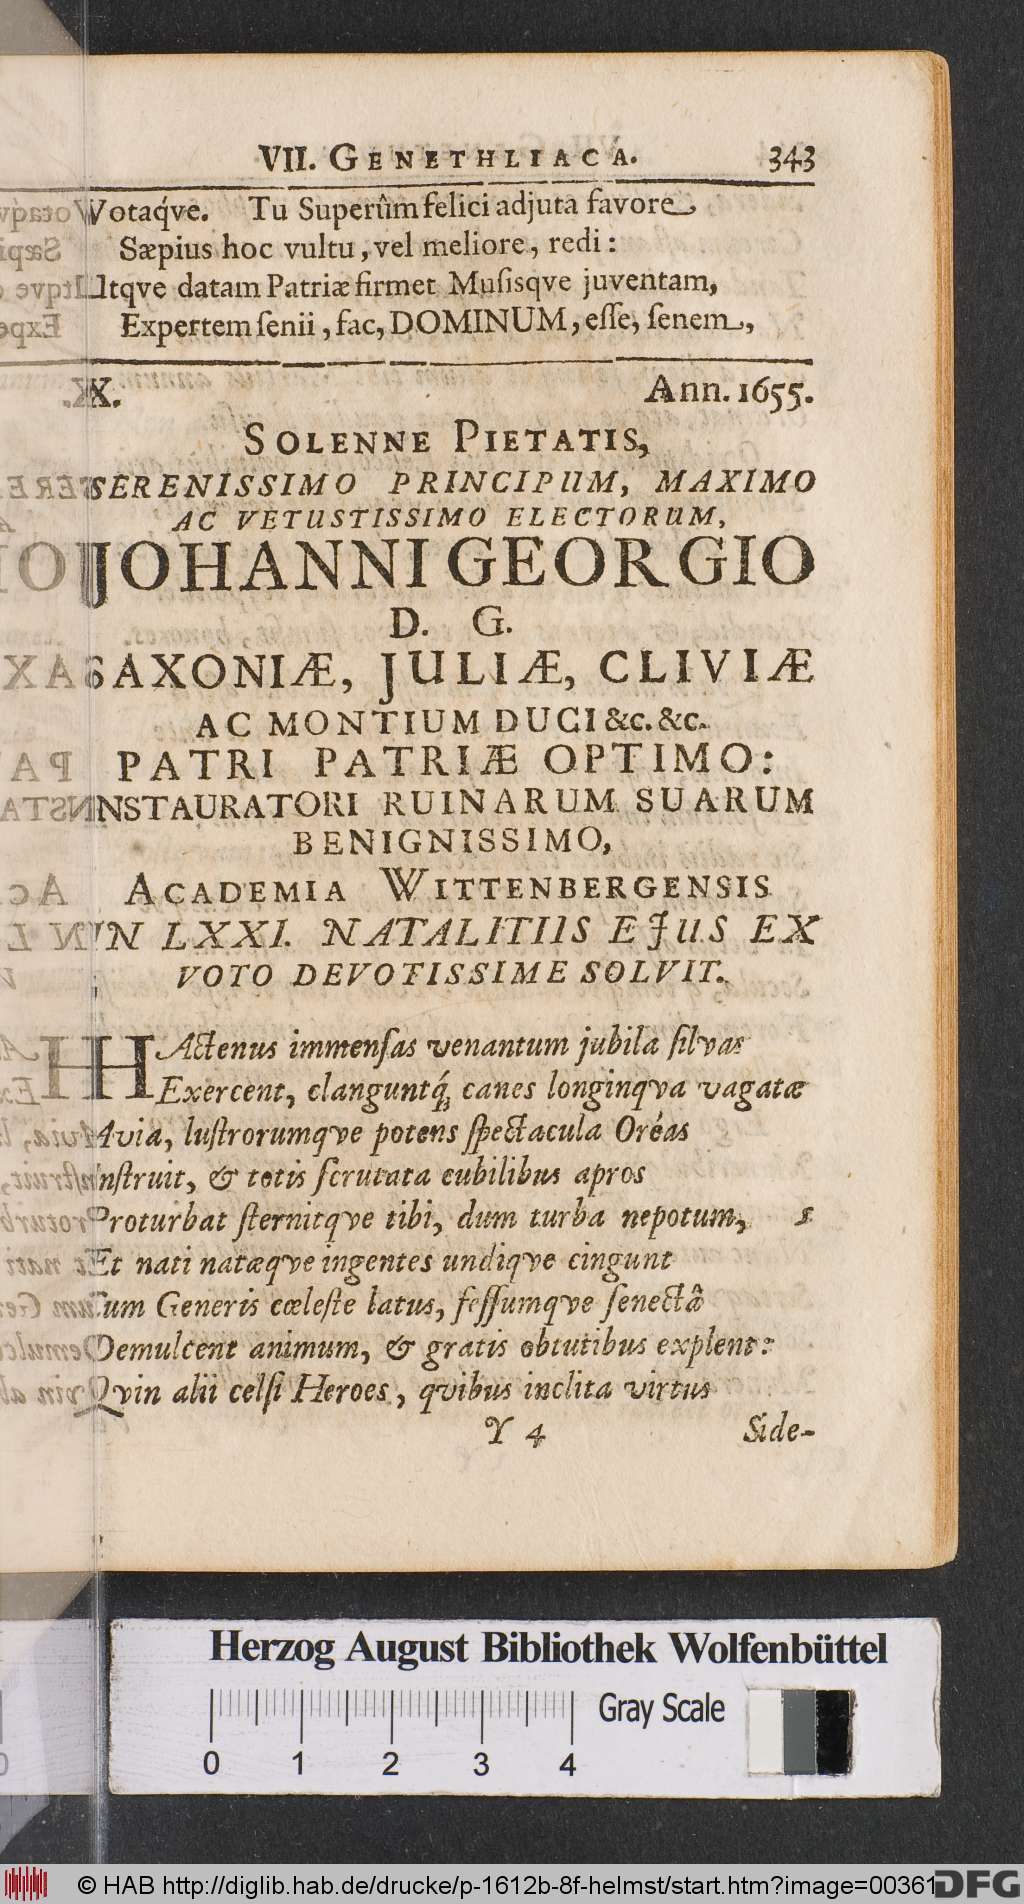 VII. GENETHLIACA. 343
Votaq́ve. Tu Superûm felici adjuta favore
Sæpius hoc vultu, vel meliore, redi:
Utqve datam Patriæ firmet Musisqve juventam,
Expertem senii, fac, DOMINUM, esse, senem,
X. Ann. 1655.
SOLENNE PIETATIS,
SERENISSIMO PRINCIPUM, MAXIMO
AC VETUSTISSIMO ELECTORUM,
JOHANNI GEORGIO
D. G.
SAXONIÆ, JULIÆ, CLIVIÆ
AC MONTIUM DUCI &c. &c.
PATRI PATRIÆ OPTIMO:
INSTAURATORI RUINARUM SUARUM
BENIGNISSIMO,
ACADEMIA WITTENBERGENSIS
IN LXXI. NATALITIIS EJUS EX
VOTO DEVOTISSIME SOLVIT.
HActenus immensas venantum jubila silvas
Exercent, clanguntq́; canes longinqva vagatæ
Avia, lustrorumqve potens spectacula Oréas
Instruit, & totis scrutata cubilibus apros
Proturbat sternitqve tibi, dum turba nepotum, 5
Et nati natæqve ingentes undiqve cingunt
Cum Generis cœleste latus, fessumqve senectâ
Demulcent animum, & gratis obtutibus explent:
Qvin alii celsi Heroes, qvibus inclita virtus
Y 4 Side-
Herzog August Bibliothek Wolfenbüttel
Gray Scale
0 1 2 3 4
© HAB http://diglib.hab.de/drucke/p-1612b-8f-helmst/start.htm?image=00361
DFG